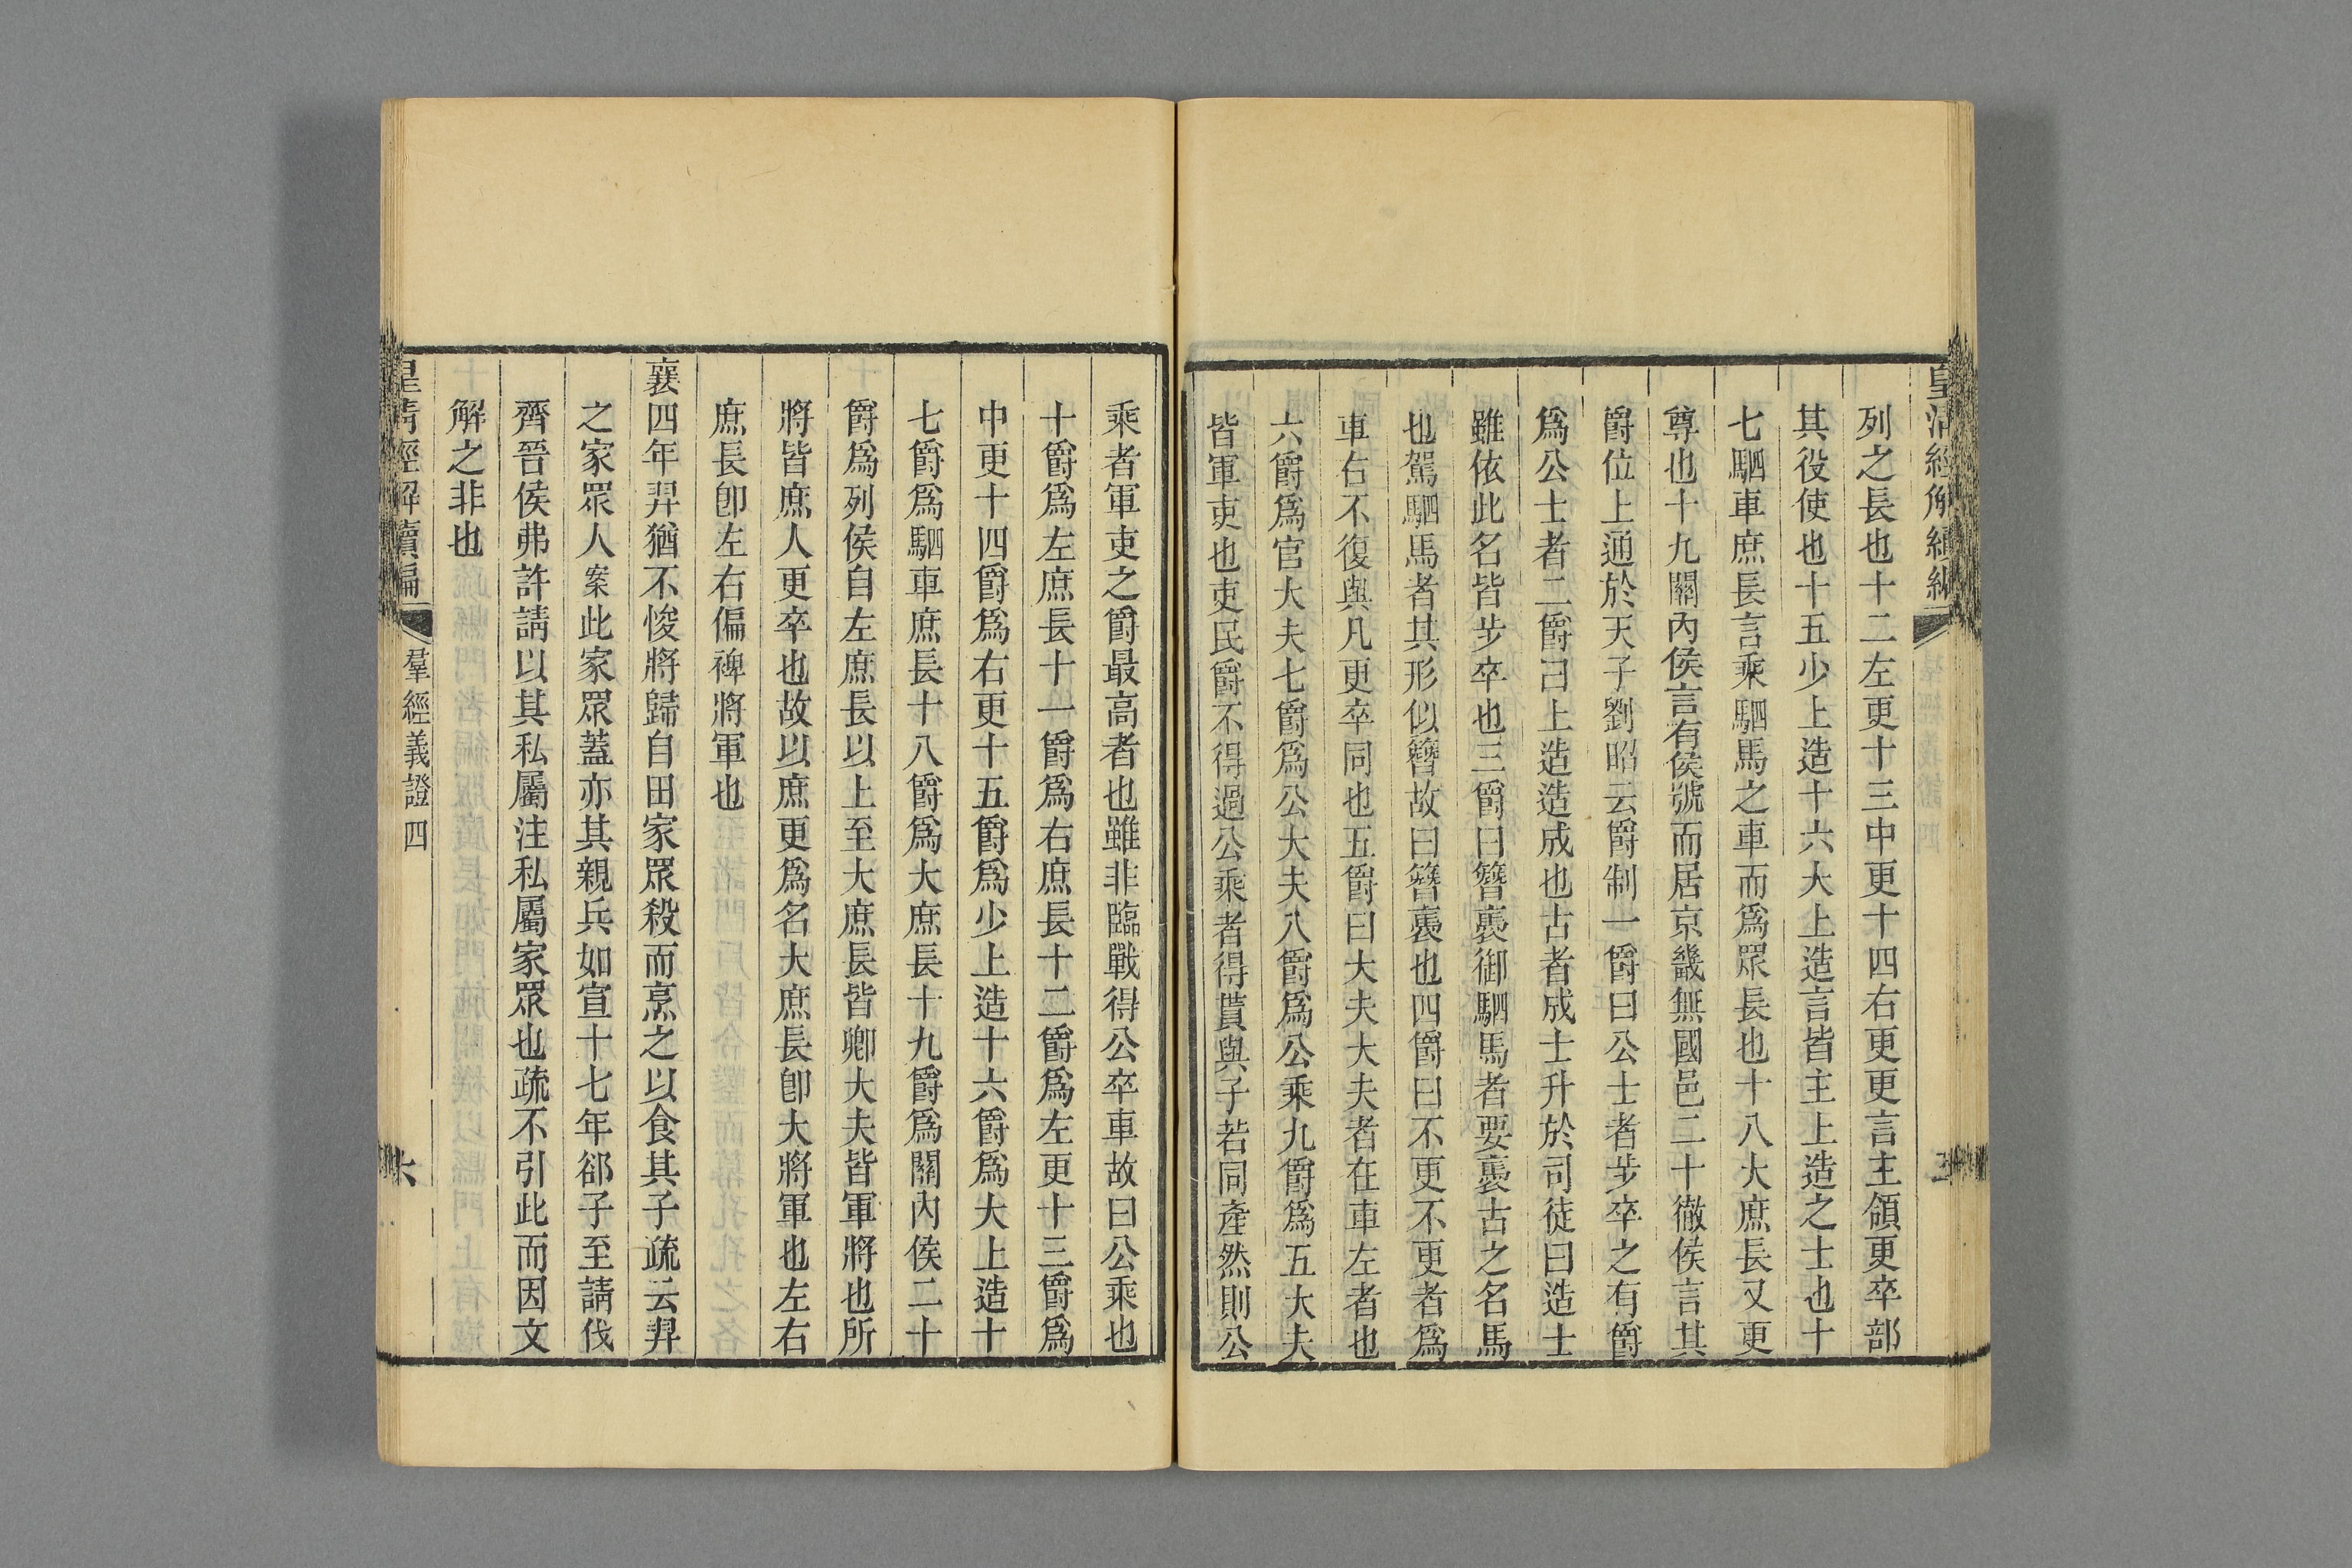 列之長也十二左更十三中更十四右更更言主領更卒部
其役使也十五少上造十六大上造言皆主上造之士也十
七駟車庶長言乘駟馬之車而爲眾長也十八大庶長又更
尊也十九關內侯言有侯號而居京畿無國邑二十徹侯言其
爵位上通於天子劉昭云爵制一爵曰公士者步卒之有爵
爲公士者二爵曰上造造成也古者成士升於司徒曰造士
雖依此名皆步卒也三爵曰簪褭御駟馬者要褭古之名馬
也駕駟馬者其形似簪故曰簪褭也四爵曰不更不更者爲
車右不復與凡更卒同也五爵曰大夫大夫者在車左者也
六爵爲官大夫七爵爲公大夫八爵爲公乘九爵爲五大夫
皆軍吏也吏民爵不得過公乘者得貰與子若同產然則公
乘者軍吏之爵最高者也雖非臨戰得公卒車故曰公乘也
十爵爲左庶長十一爵爲右庶長十二爵爲左更十三爵爲
中更十四爵爲右更十五爵爲少上造十六爵爲大上造十
七爵爲駟車庶長十八爵爲大庶長十九爵爲關內侯二十
爵爲列侯自左庶長以上至大庶長皆卿大夫皆軍將也所
將皆庶人更卒也故以庶更爲名大庶長卽大將軍也左右
庶長卽左右偏裨將軍也
襄四年羿猶不悛將歸自田家眾殺而烹之以食其子疏云羿
之家眾人案此家眾蓋亦其親兵如宣十七年郤子至請伐
齊晉侯弗許請以其私屬注私屬家眾也疏不引此而因文
解之非也
皇清經解續編
羣經義證四
六